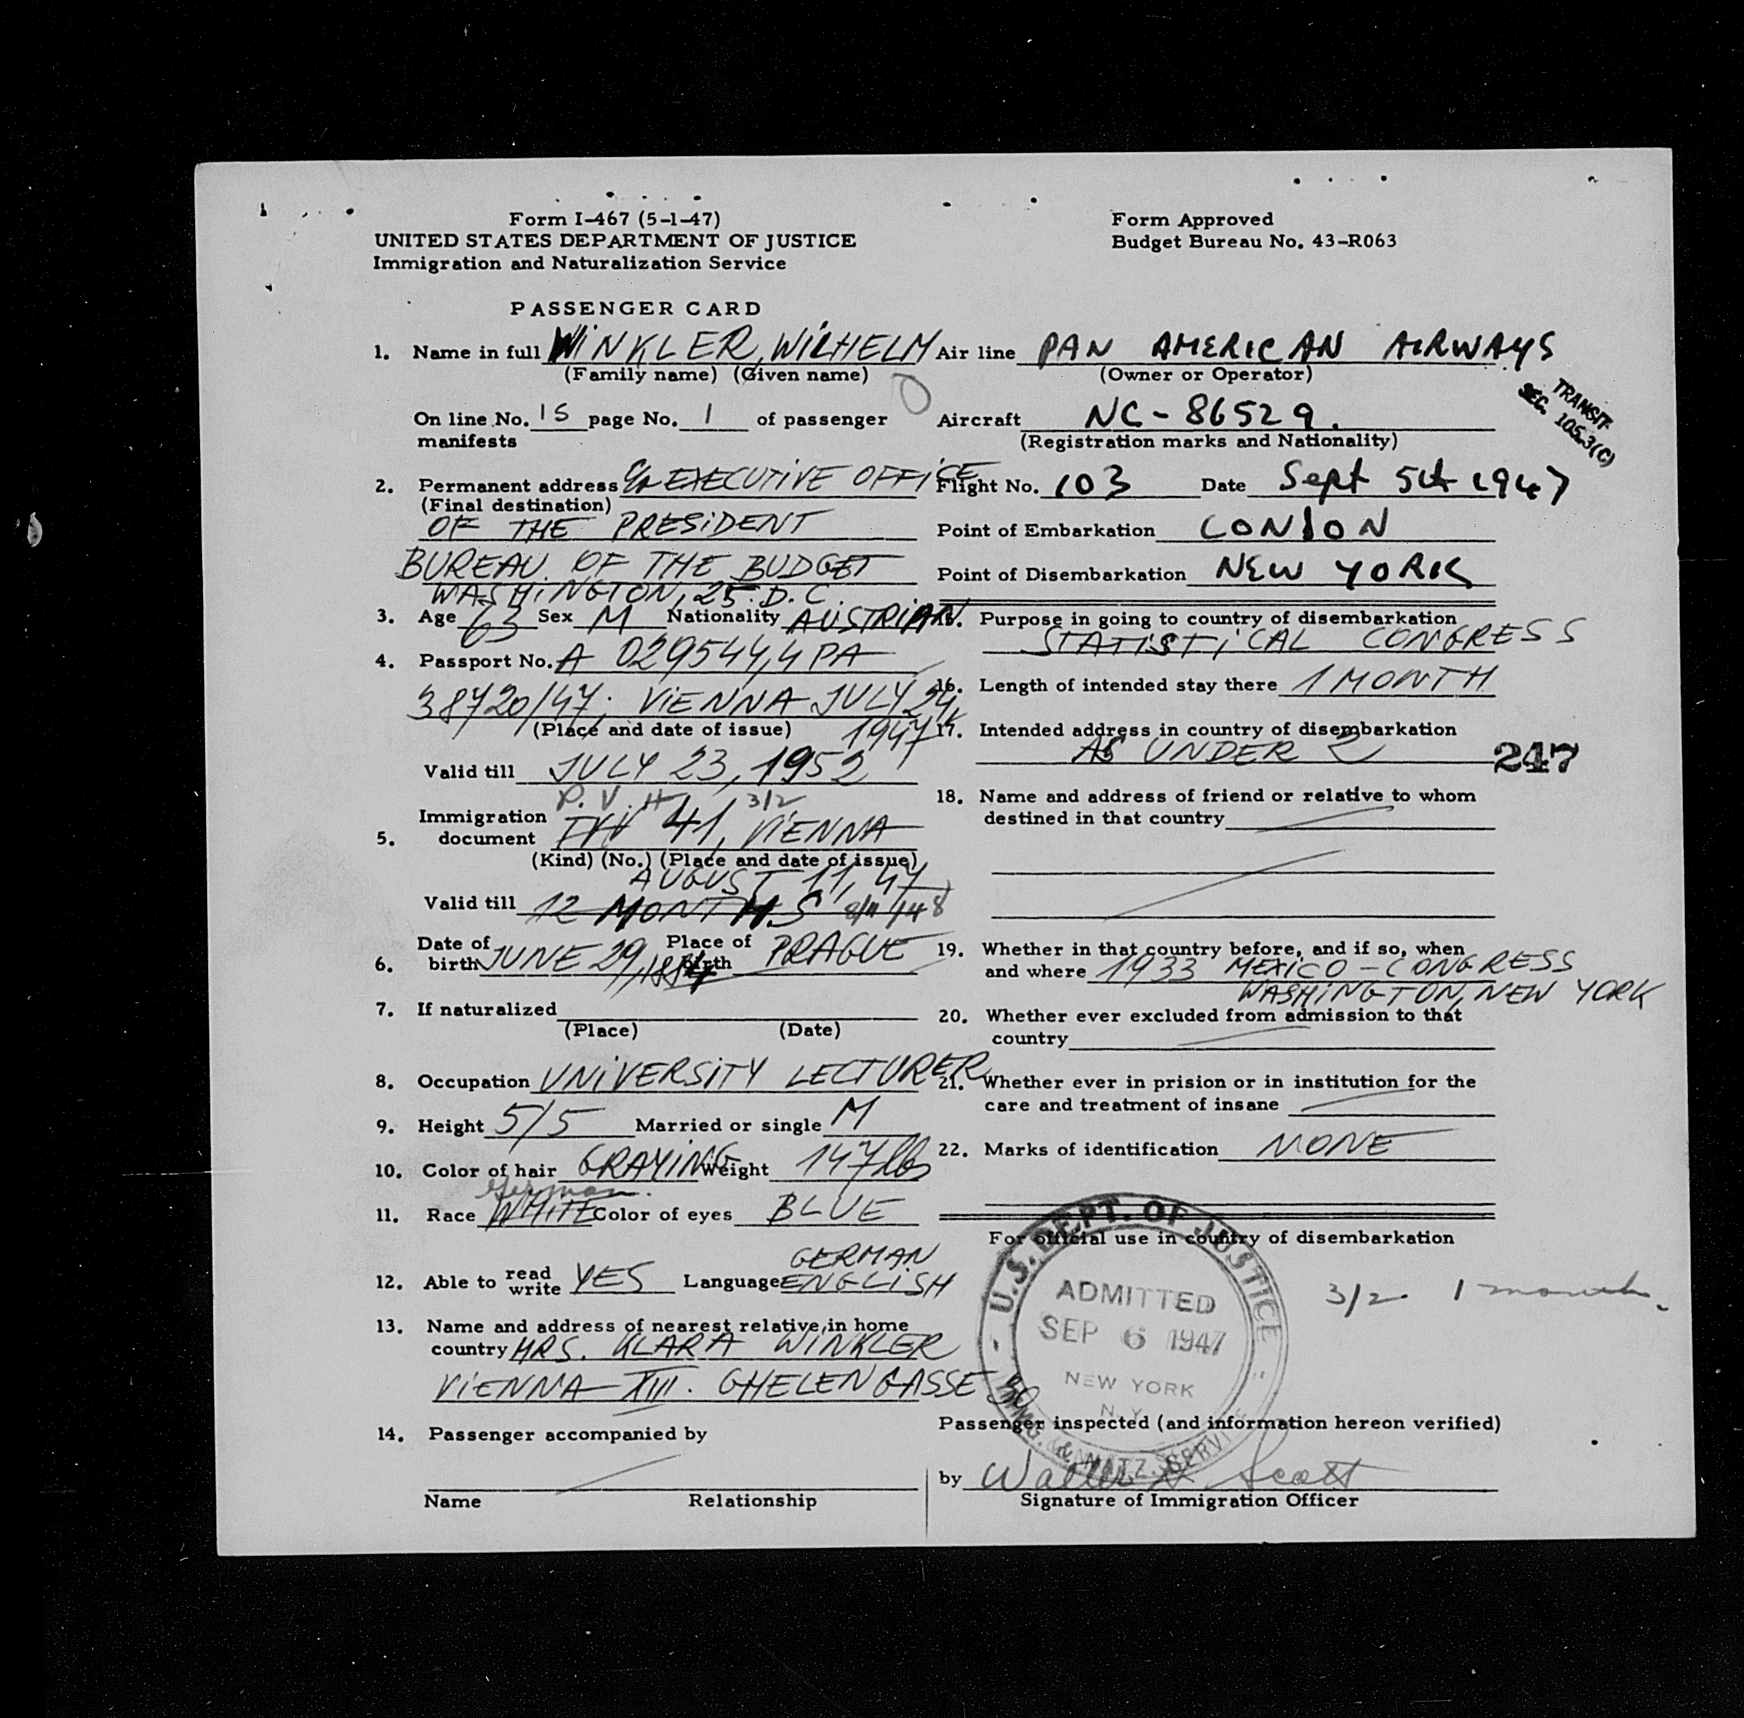 Form I-467 (5-1-47)
UNITED STATES DEPARTMENT OF JUSTICE
Immigration and Naturalization Service
Form Approved
Budget Bureau No. 43-R063
PASSENGER CARD
1. Name in full WINKLER, WILHELM
(Family name) (Given name)
On line No. 15 page No. 1 of passenger
manifests
2. Permanent address c/o EXECUTIVE OFFICE
(Final destination)
OF THE PRESIDENT
BUREAU OF THE BUDGET
WASHINGTON, 25. D.C.
3. Age 63 Sex M Nationality AUSTRIAN
4. Passport No. A 029544, 4 PA
38720/47; VIENNA JULY 24,
(Place and date of issue) 1947
Valid till JULY 23, 1952
P.V. 3/2
Immigration
5. document 41, VIENNA
(Kind) (No.) (Place and date of issue)
AUGUST 11, 47
Valid till 12 MONTHS 8/11/48
Date of Place of
6. birth JUNE 29, 1884 birth PRAGUE
7. If naturalized
(Place) (Date)
8. Occupation UNIVERSITY LECTURER
9. Height 5/5 Married or single M
10. Color of hair GRAYING Weight 147 lbs
German.
11. Race WHITE Color of eyes BLUE
GERMAN
12. Able to read write YES Language ENGLISH
13. Name and address of nearest relative in home
country MRS. KLARA WINKLER
VIENNA XIII. GHELENGASSE 30
14. Passenger accompanied by
Name Relationship
Air line PAN AMERICAN AIRWAYS
(Owner or Operator)
TRANSIT
SEC. 105.3(C)
Aircraft NC-86529.
(Registration marks and Nationality)
Flight No. 103 Date Sept 5th 1947
Point of Embarkation LONDON
Point of Disembarkation NEW YORK
15. Purpose in going to country of disembarkation
STATISTICAL CONGRESS
16. Length of intended stay there 1 MONTH
17. Intended address in country of disembarkation
AS UNDER 2
247
18. Name and address of friend or relative to whom
destined in that country
19. Whether in that country before, and if so, when
and where 1933 MEXICO - CONGRESS
WASHINGTON, NEW YORK
20. Whether ever excluded from admission to that
country
21. Whether ever in prision or in institution for the
care and treatment of insane
22. Marks of identification NONE
For official use in country of disembarkation
U.S. DEPT. OF JUSTICE
ADMITTED
SEP 6 1947
NEW YORK
N.Y.
IMMG. & NATZ. SERVICE
3/2 1 month.
Passenger inspected (and information hereon verified)
by Walter Scott
Signature of Immigration Officer